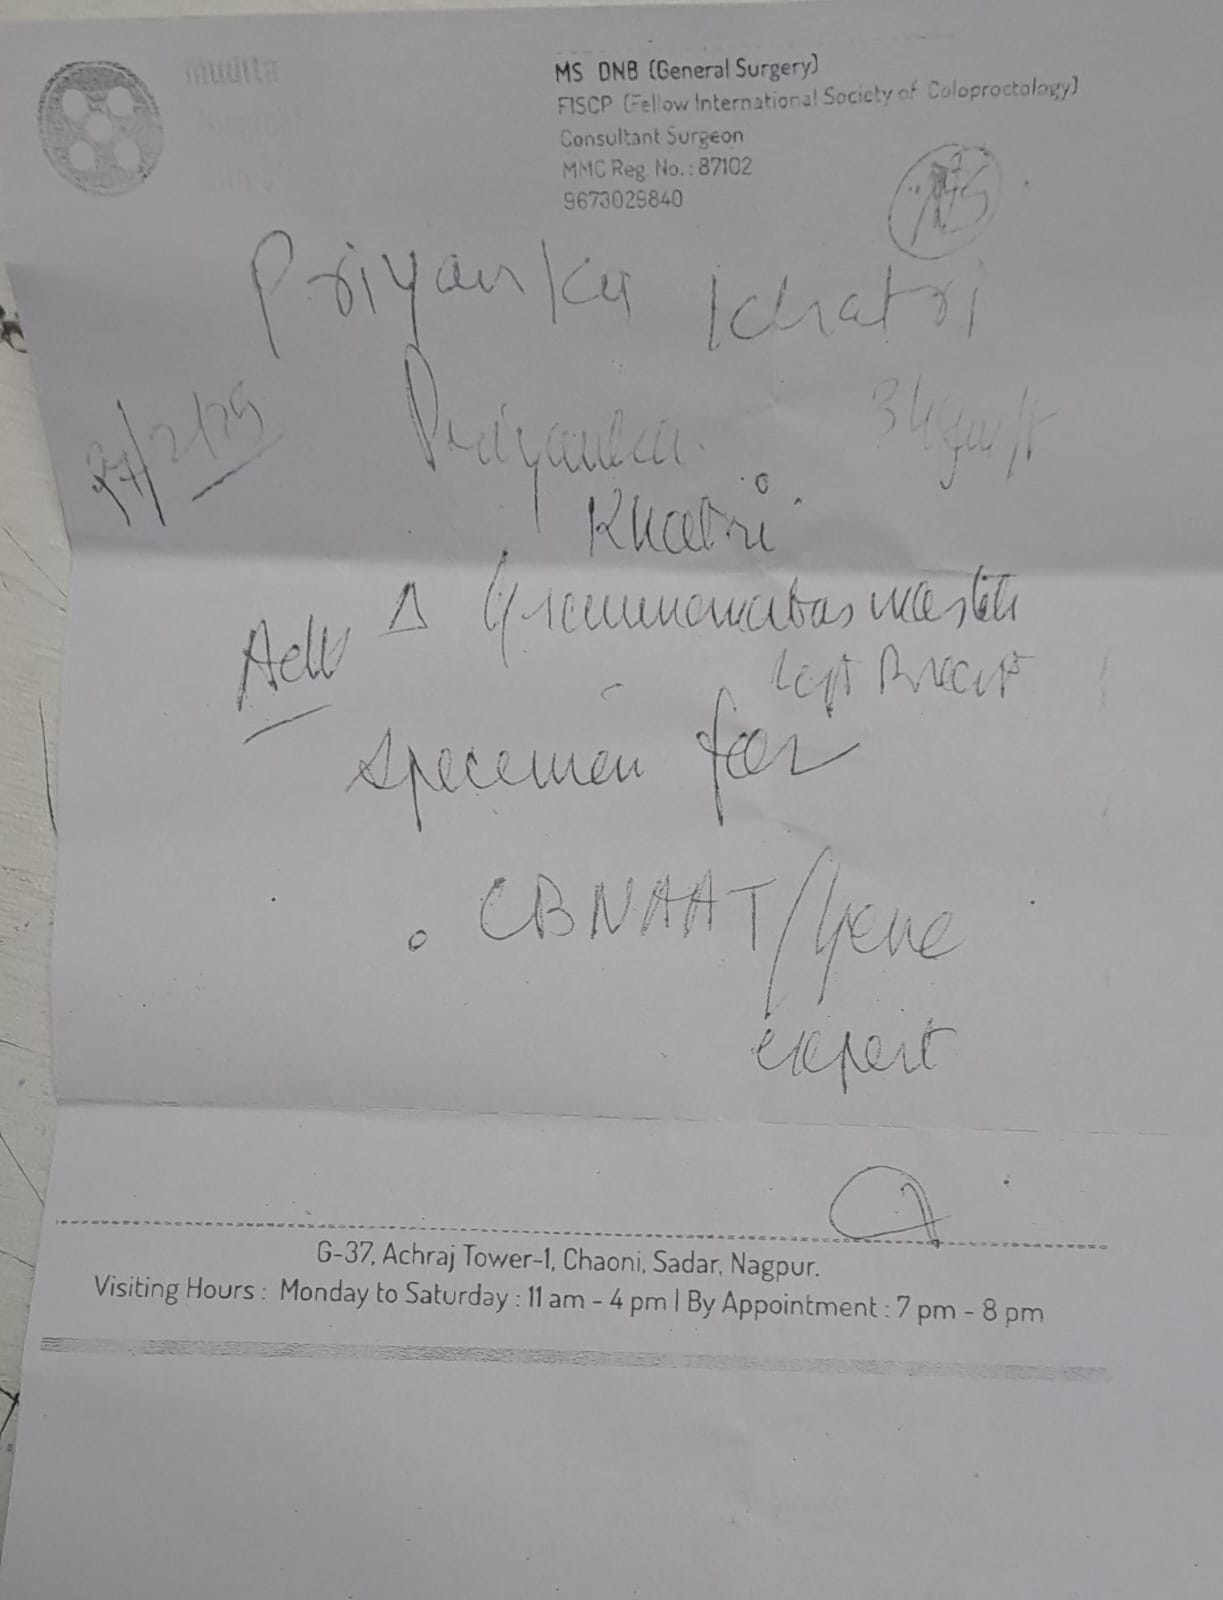 mudita
MS DNB (General Surgery)
FISCP (Fellow International Society of Coloproctology)
Consultant Surgeon
MMC Reg. No. : 87102
9673029840
Priyanka Khatri
27/2/25
Priyanka
Khatri
Adv Δ Granulomatous mastitis
Left Breast
specimen for
CBNAAT/Gene
expert
G-37, Achraj Tower-1, Chaoni, Sadar, Nagpur.
Visiting Hours : Monday to Saturday : 11 am - 4 pm | By Appointment : 7 pm - 8 pm